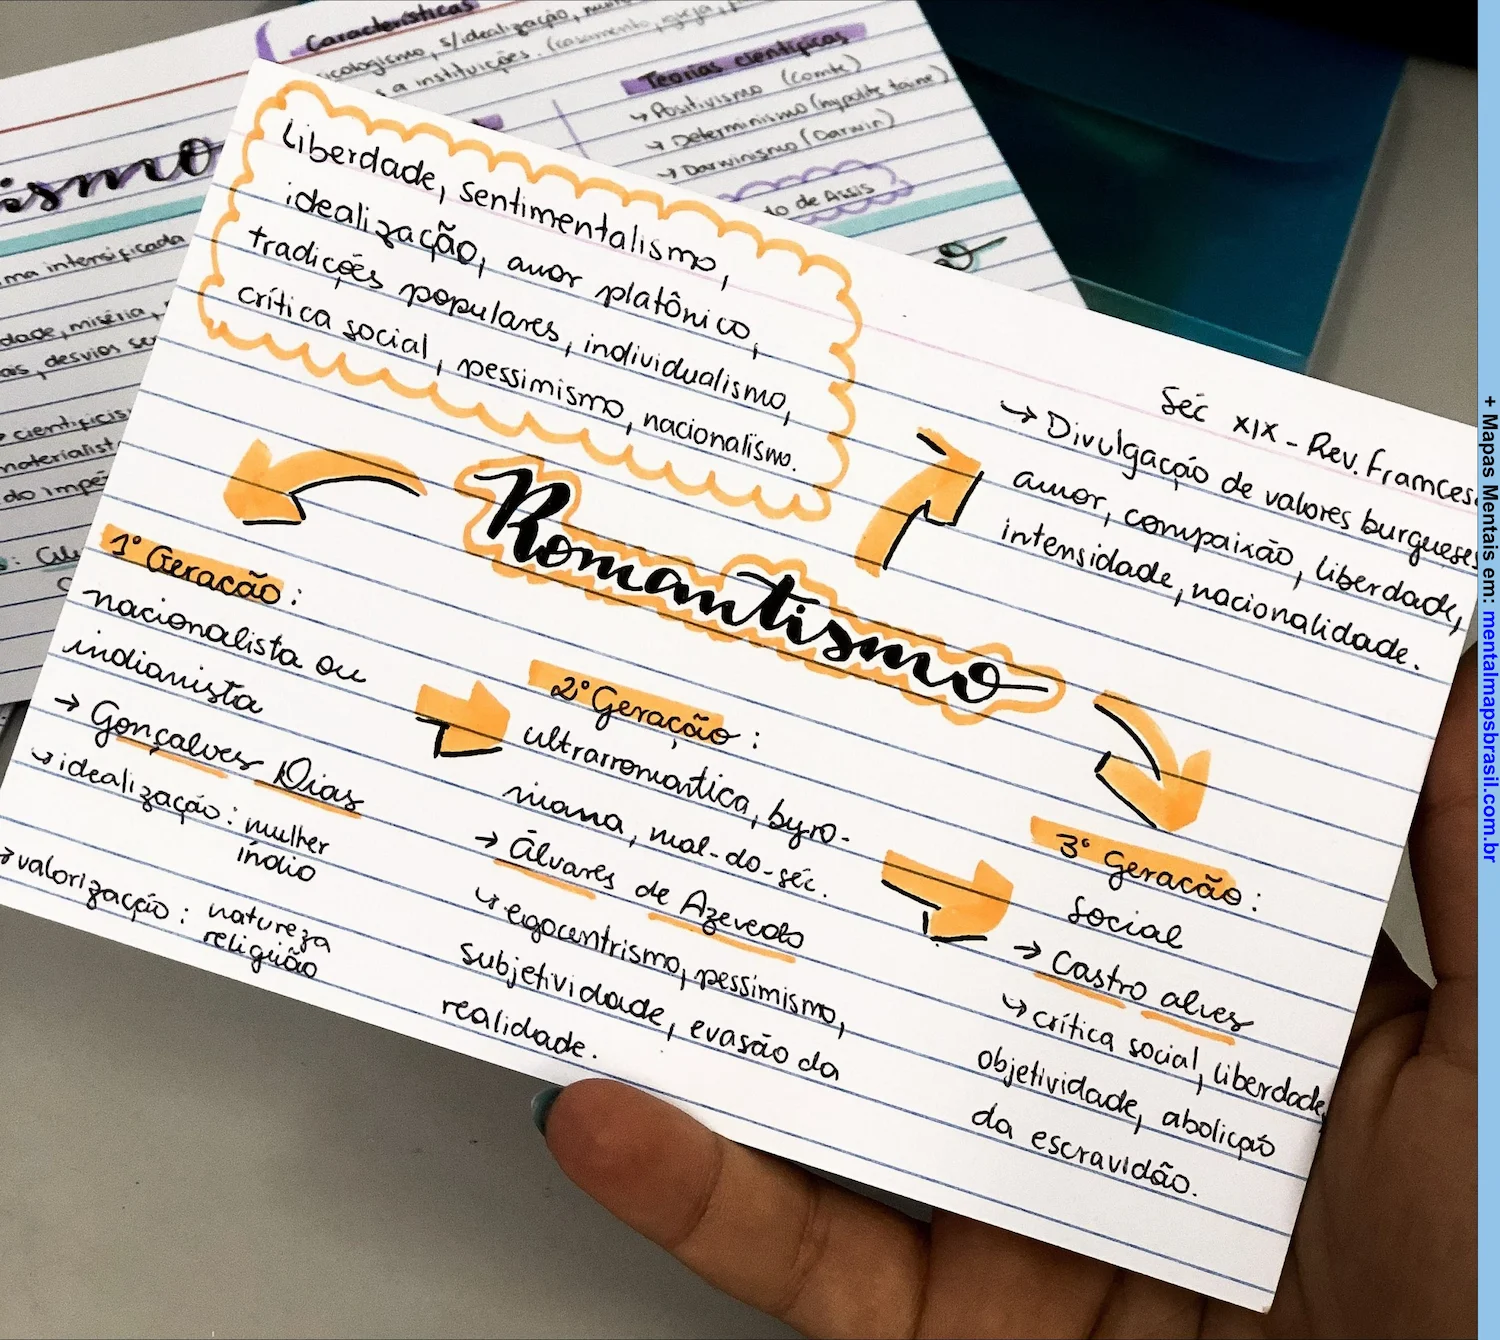 Características
icologismo, s/idealização,
s a instituições. (casamento, igreja,
Teorias científicas
↳ Positivismo (Comte)
↳ Determinismo (hypolite taine)
↳ Darwinismo (Darwin)
do de Assis
ismo
ma intensificada
dade, miséria,
desvios
cientificis
materialist
do impé
liberdade, sentimentalismo,
idealização, amor platônico,
tradições populares, individualismo,
crítica social, pessimismo, nacionalismo.
Séc XIX - Rev. Frances
↳ Divulgação de valores burgueses
amor, compaixão, liberdade,
intensidade, nacionalidade.
Romantismo
1° Geração:
nacionalista ou
indianista
→ Gonçalves Dias
↳ idealização: mulher
índio
→ valorização: natureza
religião
2° Geração:
ultrarromântica, byro-
niana, mal-do-séc.
→ Álvares de Azevedo
↳ egocentrismo, pessimismo,
subjetividade, evasão da
realidade.
3° Geração:
social
→ Castro alves
↳ crítica social, liberdade,
objetividade, abolição
da escravidão.
+ Mapas Mentais em: mentalmapsbrasil.com.br